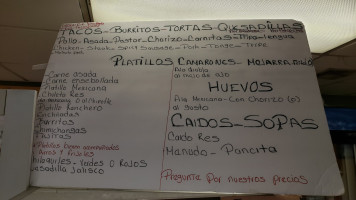 TACOS-BURRITOS-TORTAS-QUESADILLAS
Pollo-Asada-Pastor-Chorizo-Carnitas-Tripa-Lengua
Chicken-Steak-
PLATILLOS CAMARONES-MOJARRA
-Carne asada
-Carne encebollada
-Platillo Mexicana
-Chuleta Res
-Platillo Ranchero
-Enchiladas
-Burritos
-Chimichangas
-Fajitas
Arroz y Frijoles
-Chilaquiles-Verdes o Rojos
Quesadilla Jalisco
al mojo de ajo
HUEVOS
a la Mexicana-Con Chorizo (o)
al gusto
CALDOS-SOPAS
Caldo Res
Menudo-Pancita
Pregunte Por nuestros precios